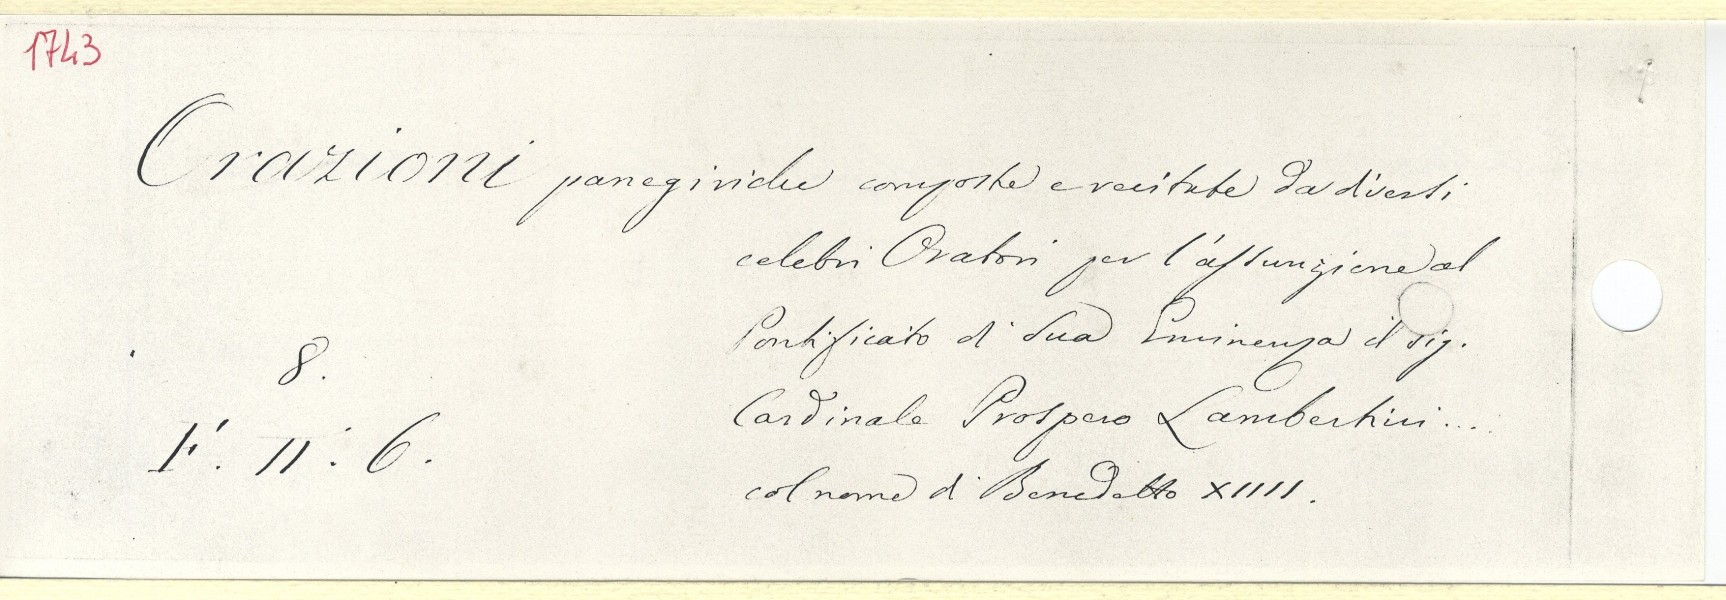 1743
Orazioni panegiriche composte e recitate da diversi
celebri Oratori per l'assunzione al
Pontificato di Sua Eminenza il sig.
Cardinale Prospero Lambertini....
col nome di Benedetto XIIII.
8.
F. II. 6.